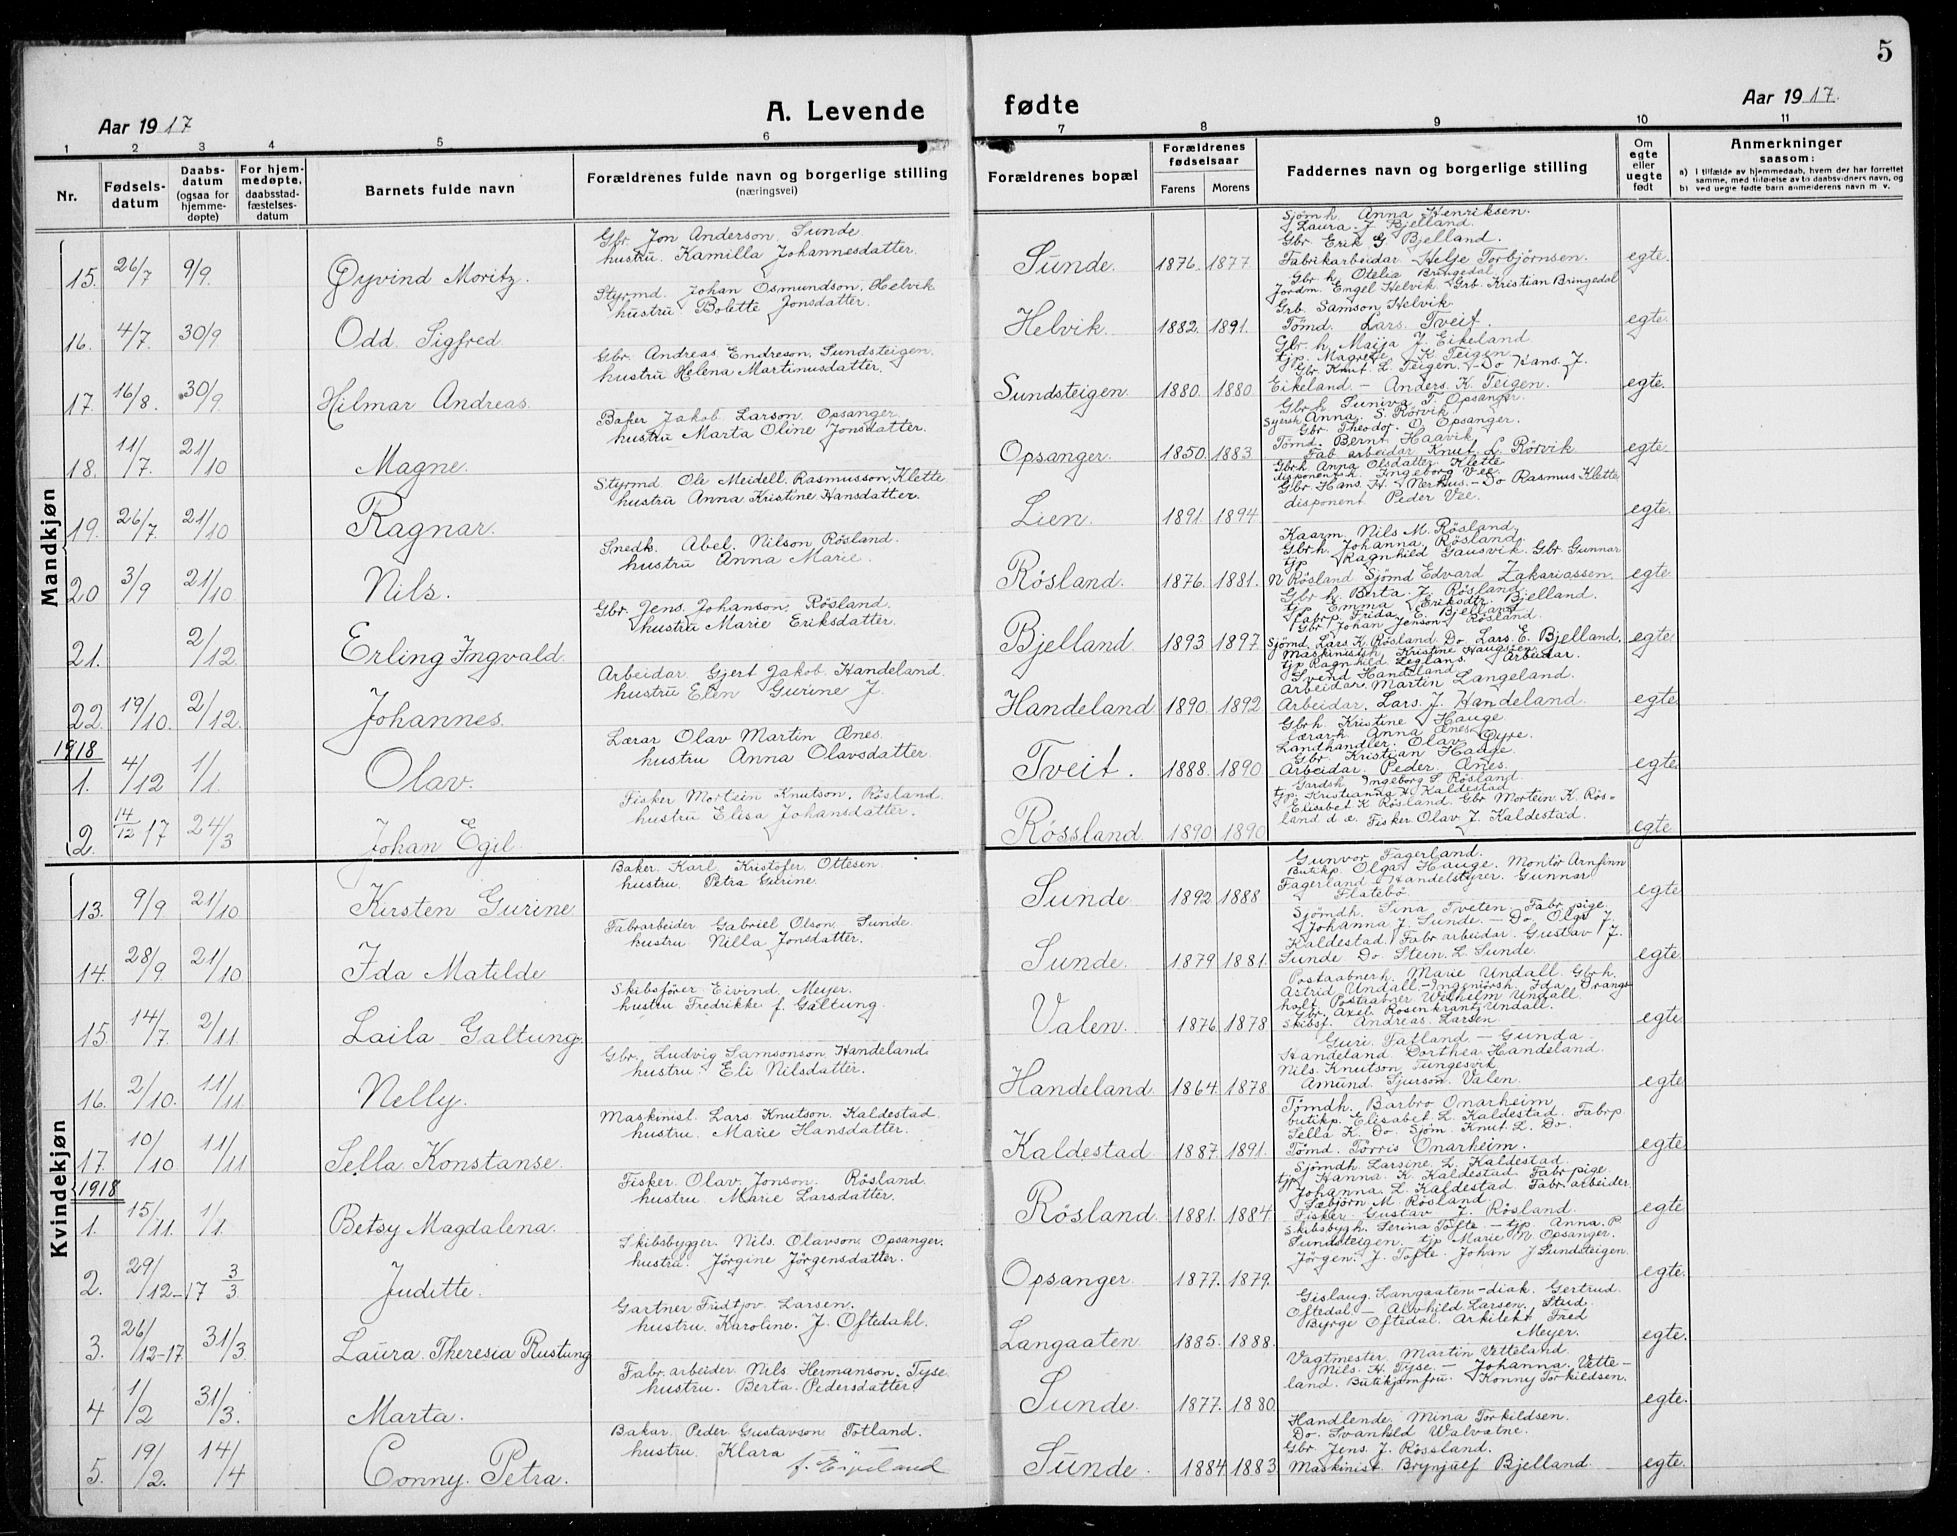 5
Aar 1917
A. Levende fødte
Aar 1917.
1 2 3 4 5 6 7 8 9 10 11
Nr.
Fødsels-datum
Daabs-datum (ogsaa for hjemme-døpte)
For hjem-medøpte, daabsstad-fæstelses-datum
Barnets fulde navn
Forældrenes fulde navn og borgerlige stilling (næringsvei)
Forældrenes bopæl
Forældrenes fødselsaar
Farens Morens
Faddernes navn og borgerlige stilling
Om egte eller uegte født
Anmerkninger saasom:
a) I tilfælde av hjemmedaab, hvem der har forrettet samme, med tilføielse av to daabsvidners navn, og
b) ved uegte fødte barn anmelderens navn m. v.
Mandkjøn
15. 26/7 9/9. Øyvind Moritz.
Gbr. Jon Anderson, Sunde
hustru. Kamilla Johannesdatter.
Sunde. 1876. 1877
Sjømh. Anna Henriksen.
Laura J. Bjelland.
Gbr. Erik G. Bjelland.
Fabrikarbeidar Helje Torbjørnsen.
egte.
16. 4/7. 30/9 Odd Sigfred
Styrmd. Johan Osmundson, Helvik
hustru Bolette Jonsdatter.
Helvik. 1882. 1891.
Gbr. h. Otelia Bringedal
Jordm. Engel Helvik. Grb. Kristian Bringedal
Grb. Samson Helvik.
Tømd. Lars Tveit.
egte.
17. 16/8. 30/9. Hilmar Andreas.
Gbr. Andreas Endreson, Sundsteigen.
hustru Helena Martinusdatter.
Sundsteigen 1880. 1880
Gbr. h. Maija J. Eikeland
tjp. Magrete K. Teigen.
Gbr. Knut L. Teigen. Do Hans J.
Eikeland — Anders K. Teigen.
egte.
18. 11/7. 21/10 Magne.
Baker Jakob Larson, Opsanger.
hustru Marta Oline Jonsdatter.
Opsanger. 1850. 1883
Gbr h. Suniva T. Opsanger.
Syersk Anna S. Rørvik
Gbr. Theodor O. Opsanger.
Tømd. Bernt Haavik
Fab arbeidar Knut L. Rørvik
egte.
19. 26/7. 21/10 Ragnar.
Styrmd Ole Meidell Rasmusson, Klette
hustru Anna Kristine Hansdatter.
Lien. 1891 1894
Gbrh Anna Olsdatter Klette
disponent h. Ingeborg Vee.
Gbr. Hans H. Nerhus. — Do Rasmus Klette,
disponent Peder Vee.
egte.
20 3/9 21/10. Nils.
Snedk. Abel. Nilson Røsland.
hustru Anna Marie.
Røsland. 1876. 1881.
Kaarm. Nils M. Røsland.
Gbr. h. Johanna Røsland.
tjp Ragnhild Gausvik. Gbr. Gunnar
N. Røsland Sjømd Edvard Zakariassen.
egte.
21. 2/12. Erling Ingvald
Gbr. Jens Johanson, Røsland.
hustru Marie Eriksdatter.
Bjelland. 1893 1897
Gbr h. Berta J. Røsland.
tjp. Emma Eriksdtr. Bjelland.
Fabrp. Frida E. Bjelland
Gbr Johan Jenson Røsland.
Sjømd. Lars K. Røsland Do Lars E. Bjelland.
egte
22. 19/10. 2/12. Johannes.
Arbeidar Gjert Jakob Handeland.
hustru Elen Gurine J.
Handeland 1890 1892
Maskinisth. Kristine Haugseen
tjp Ragnhild Leglans. Arbeidar.
Svend Handeland.
Arbeidar Martin Langeland.
Arbeidar. Lars J. Handeland.
egte.
1918
1. 4/12 1/1. Olav.
Lærar Olav Martin Ænes.
hustru Anna Olavsdatter.
Tveit. 1888. 1890
Gbr h. Kristine Hauge
Lærarh. Anna Ænes.
Landhandler. Olav Øyre.
Gbr. Kristian Hauge.
Arbeidar Peder Ænes.
egte.
2. 14/12 17 24/3 Johan Egil.
Fisker Mortein Knutson, Røsland.
hustru Elisa Johansdatter.
Røssland. 1890 1890
Gardsh. Ingeborg S Røsland.
tjp. Kristianna H. Kaldestad
Elisabet K Røsland. Gbr Mortein K. Røs=
land d æ. Fisker Olav J. Kaldestad.
egte
Kvindekjøn
13. 9/9 21/10 Kirsten Gurine
Baker Karl Kristofer Ottesen
hustru. Petra Gurine.
Sunde. 1892 1888
Gunvor Fagerland.
Butikp. Olga Hauge. Montør Arnfinn
Fagerland — Handelstyrer. Gunnar
Flatebø.
egte
14. 28/9 21/10 Ida Matilde
Fabrarbeider Gabriel Olson, Sunde
hustru Nilla Jonsdatter.
Sunde. 1879 1881.
Sjømdh. Sina Tveten. Fabr. pige
Johanna J. Sunde. — Do, Olga J.
Kaldestad. Fabr arbeidar. Gustav J.
Sunde Do Stein L. Sunde.
egte.
15. 14/7 2/11. Laila Galtung.
Skibsfører Eivind Meyer.
hustru Fredrikke f. Galtung.
Valen. 1876. 1878
Postaabnerh. Marie Undall. Gbr h.
Astrid Undall. — Ingeniørsh. Ida Orangs
holt Postaabner Wilhelm Undall.
Gbr. Axel Rosenkrantz Undall.
Skibsf. Andreas Larsen
egte.
16. 2/10. 11/11 Nelly.
Gbr. Ludvig Samsonson, Handeland.
hustru. Eli Nilsdatter.
Handeland. 1864. 1878
Guri Fatland — Gunda
Handeland Dorthea Handeland.
Nils Knutson Tungesvik
Amund Sjurson Valen.
egte
17. 10/10 11/11 Sella Konstanse.
Maskinist. Lars Knutson Kaldestad
hustru. Marie Hansdatter.
Kaldestad 1887. 1891.
Tømdh. Barbro Onarheim
butikp. Elisabet L. Kaldestad. Fabrp
Sella K. Do. Sjøm Knut L. Do.
Tømd. Torris Onarheim.
egte.
1918
1. 15/11. 1/1. Betsy Magdalena.
Fisker. Olav Jonson Røsland
hustru. Marie Larsdatter.
Røsland. 1881. 1884.
Sjømdh. Larsine L. Kaldestad.
tjp. Hanna K. Kaldestad. Fabr. pige
Johanna L. Kaldestad Fabr. arbeider
Sæbjørn M. Røsland.
Fisker Gustav J. Røsland.
egte.
2. 29/12-17 3/3 Juditte.
Skibsbygger. Nils Olavson, Opsanger.
hustru. Jørgine Jørgensdatter.
Opsanger. 1877. 1879.
Skibsbygh. Serina Tofte — tjp. Anna. P
Sundsteigen. tjp Marie N Opsanger.
Jørgen J. Tofte. Johan J Sundsteigen.
egte.
3. 26/12-17 31/3 Laura Theresia Rustung
Gartner Fridtjov Larsen.
hustru. Karoline. J. Oftedahl.
Langaaten. 1885. 1888.
Gislaug Langaaten — diak. Gertrud
Oftedal — Alvhild Larsen. Stud.
Byrge Oftedal. Arkitekt Fred
Meyer.
egte.
4 1/2 31/3. Marta.
Fabr. arbeider Nils Hermanson. Tyse
hustru. Berta Pedersdatter
Sunde. 1877. 1880
Vagtmester Martin Vetteland.
Nils. H. Tyse. — Johanna. Vette-
land. Butikjomfru. Konny Torkildsen.
egte.
5. 19/2. 14/4 Conny Petra.
Bakar Peder Gustavson Totland.
hustru. Klara
Sunde. 1884 1883.
Handlende. Mina Torkildsen.
Do. Svanhild Walvatne.
Gbr. Jens. J. Røssland.
Maskinist Brynjulf Bjelland
egte.